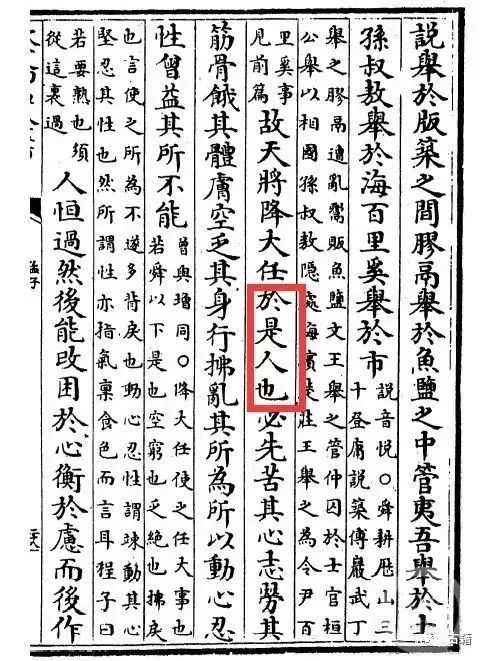 説舉於版築之間膠鬲舉於魚鹽之中管夷吾舉於士
孫叔敖舉於海百里奚舉於市
説音悅○舜耕歴山三
十登庸説築傅巖武丁
舉之膠鬲遭亂鬻販魚鹽文王舉之管仲囚於士官桓
公舉以相國孫叔敖隱處海濱楚莊王舉之為令尹百
里奚事
見前篇
故天將降大任於是人也必先苦其心志勞其
筋骨餓其體膚空乏其身行拂亂其所為所以動心忍
性曾益其所不能
曾與增同○降大任使之任大事也
若舜以下是也空窮也乏絶也拂戾
也言使之所為不遂多背戾也動心忍性謂竦動其心
堅忍其性也然所謂性亦指氣稟食色而言耳程子曰
若要熟也須
從這裏過
人恒過然後能改困於心衡於慮而後作
孟子
古籍